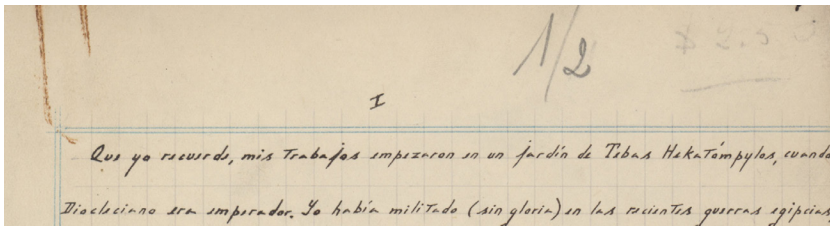 1/2
$ 2.50
I
Que yo recuerde, mis trabajos empezaron en un jardín de Tebas Hekatómpylos, cuando
Diocleciano era emperador. Yo había militado (sin gloria) en las recientes guerras egipcias,